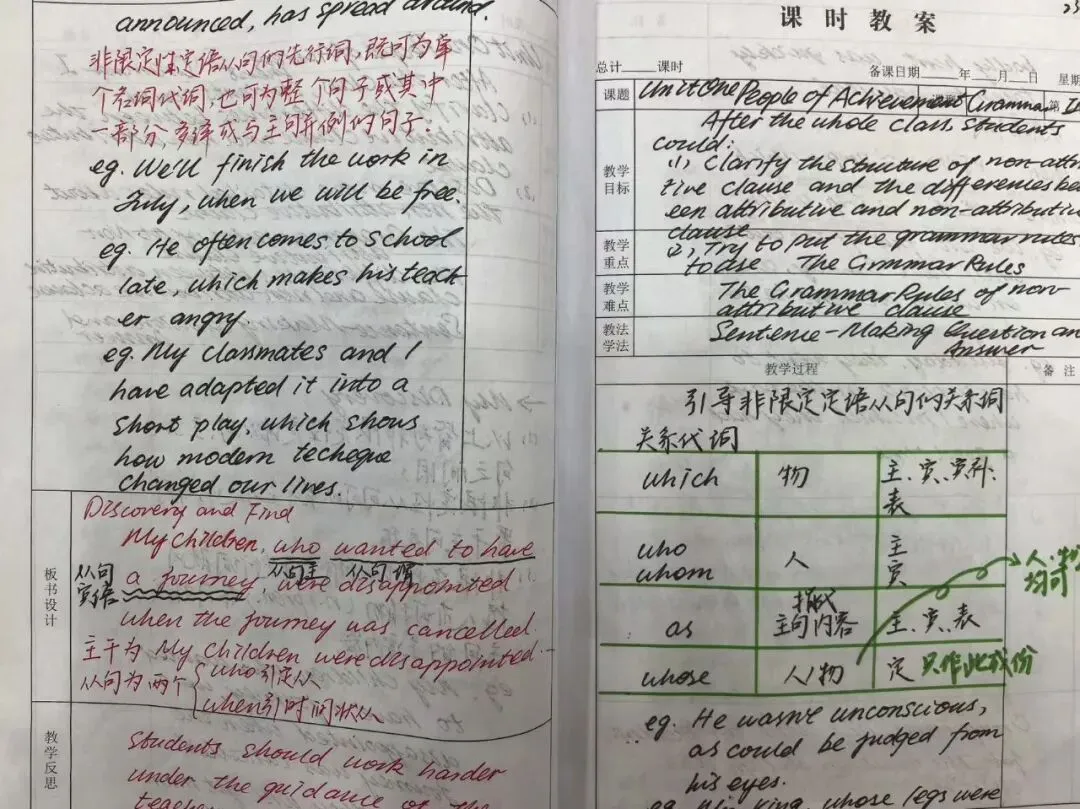 announced, has spread around.
非限定性定语从句的先行词,既可为单
个名词代词,也可为整个句子或其中
一部分,多译成与主句并例的句子.
eg. We'll finish the work in
July, when we will be free.
eg. He often comes to school
late, which makes his teach
er angry.
eg. My classmates and I
have adapted it into a
short play, which shows
how modern techeque
changed our lives.
板书设计
Discovery and Find
My children, who wanted to have
从句主 从句谓
从句
宾语
a journey, were disappointed
when the journey was cancelled.
主干为 My Children were disappointed.
从句为两个 who引定从
when引时间状从
教学反思
Students should work harder
under the guidance of the
课时教案
总计 课时
备课日期 年 月 日 星期
课题
Unit One People of Achievement Grammar
教学目标
After the whole class, students
could:
(1) Clarify the structure of non-attri
tive clause and the differencies be
een attributive and non-attributive
clause
(2) Try to put the grammar rules
to use
教学重点
The Grammar Rules
教学难点
The Grammar Rules of non-
attributive clause
教法学法
Sentence-Making Question an
Answer
教学过程
备注
引导非限定定语从句的关系词
关系代词
which 物 主、宾、宾补、
表
who 人 主
whom 宾
人、物
均可
as 指代
主句内容 主、宾、表
whose 人/物 定 只作此成份
eg. He wasn't unconscious,
as could be judged from
his eyes.
eg. king, whose legs were